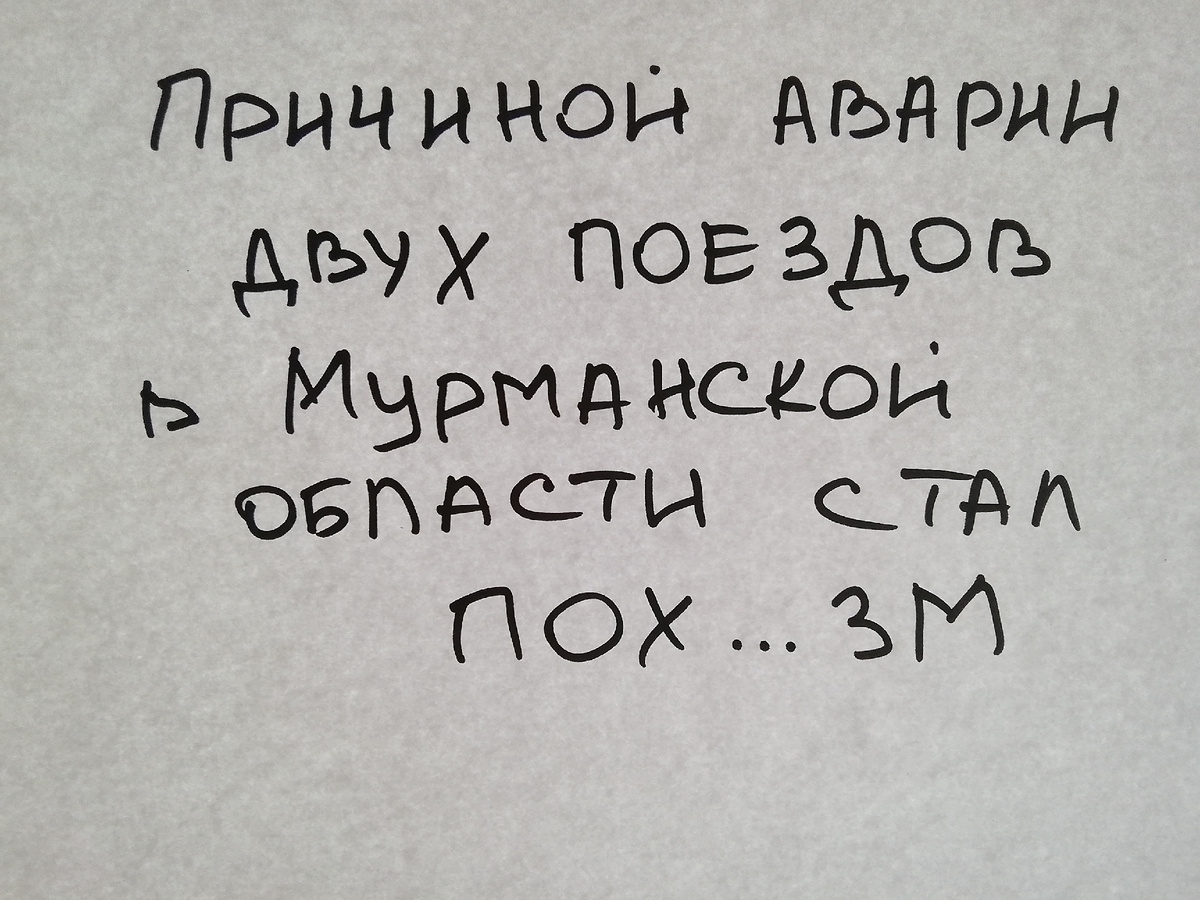 Причиной аварии
двух поездов
в Мурманской
области стал
пох...зм